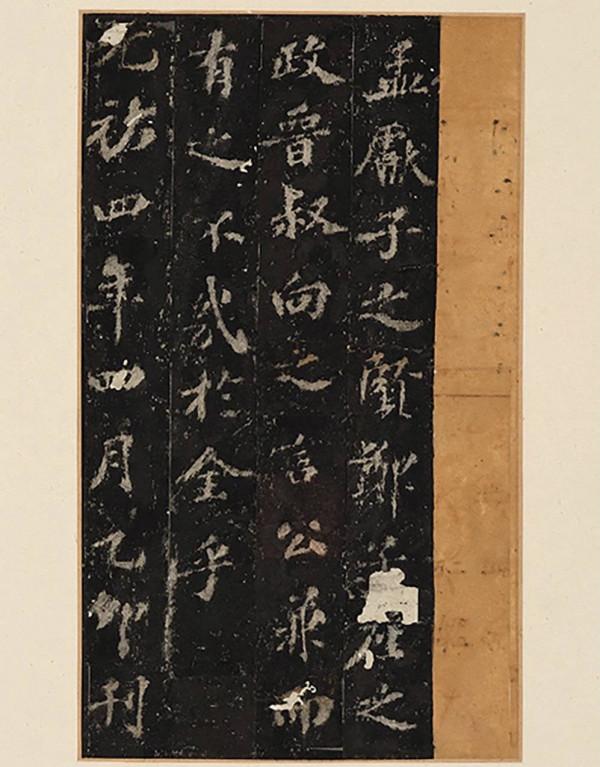 孟獻子之賢鄭之
政晉叔向之言公兼而
有之不幾於全乎
元祐四年四月乙卯刊